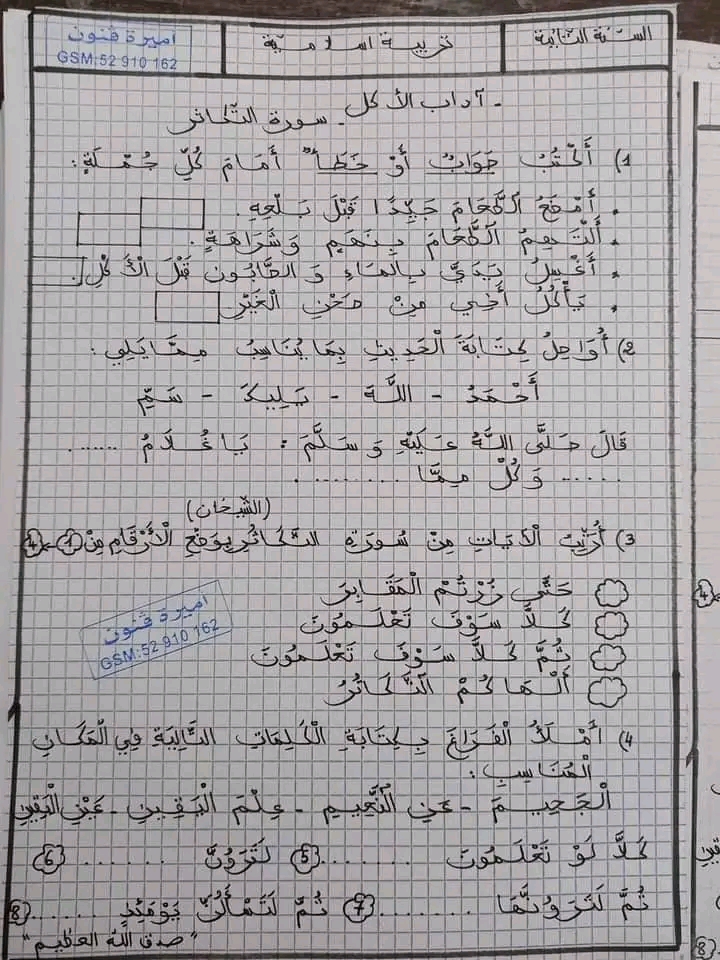 السنة الثانية
تربية اسلامية
اميرة ڨنون
GSM:52 910 162
- آداب الأكل
- سورة التكاثر
1) أَكْتُبُ صَوَابٌ أَوْ خَطَأٌ أَمَامَ كُلِّ جُمْلَةٍ:
. أَمْضَغُ الطَّعَامَ جَيِّدًا قَبْلَ بَلْعِهِ.
. أَلْتَهِمُ الطَّعَامَ بِنَهَمٍ وَشَرَاهَةٍ.
. أَغْسِلُ يَدَيَّ بِالمَاءِ وَ الصَّابُونِ قَبْلَ الْأَكْلِ.
. يَأْكُلُ أَخِي مِنْ صَحْنِ الْغَيْرِ
2) أُوَاصِلُ كِتَابَةَ الْحَدِيثِ بِمَا يُنَاسِبُ مِمَّا يَلِي:
أَحْمَدُ - اللَّهَ - يَلِيكَ - سَمِّ
قَالَ صَلَّى اللهُ عَلَيْهِ وَسَلَّمَ: يَا غُلَامُ .......
...... وَكُلْ مِمَّا ..........
(الشيخان)
3) أُرَتِّبُ الْآيَاتِ مِنْ سُورَةِ التَّكَاثُرِ بِوَضْعِ الْأَرْقَامِ مِنْ 1 - 4
حَتَّى زُرْتُمُ الْمَقَابِرَ
كَلَّا سَوْفَ تَعْلَمُونَ
ثُمَّ كَلَّا سَوْفَ تَعْلَمُونَ
أَلْهَاكُمُ التَّكَاثُرُ
اميرة ڨنون
GSM:52 910 162
4) أَمْلَأُ الْفَرَاغَ بِكِتَابَةِ الْكَلِمَاتِ التَّالِيَةِ فِي الْمَكَانِ
الْمُنَاسِبِ:
الْجَحِيمَ - عَنِ النَّعِيمِ - عِلْمَ الْيَقِينِ - عَيْنَ الْيَقِينِ
كَلَّا لَوْ تَعْلَمُونَ .......... 5 لَتَرَوُنَّ .......... 6
ثُمَّ لَتَرَوُنَّهَا .......... 7 ثُمَّ لَتُسْأَلُنَّ يَوْمَئِذٍ ........ 8
"صدق الله العظيم"